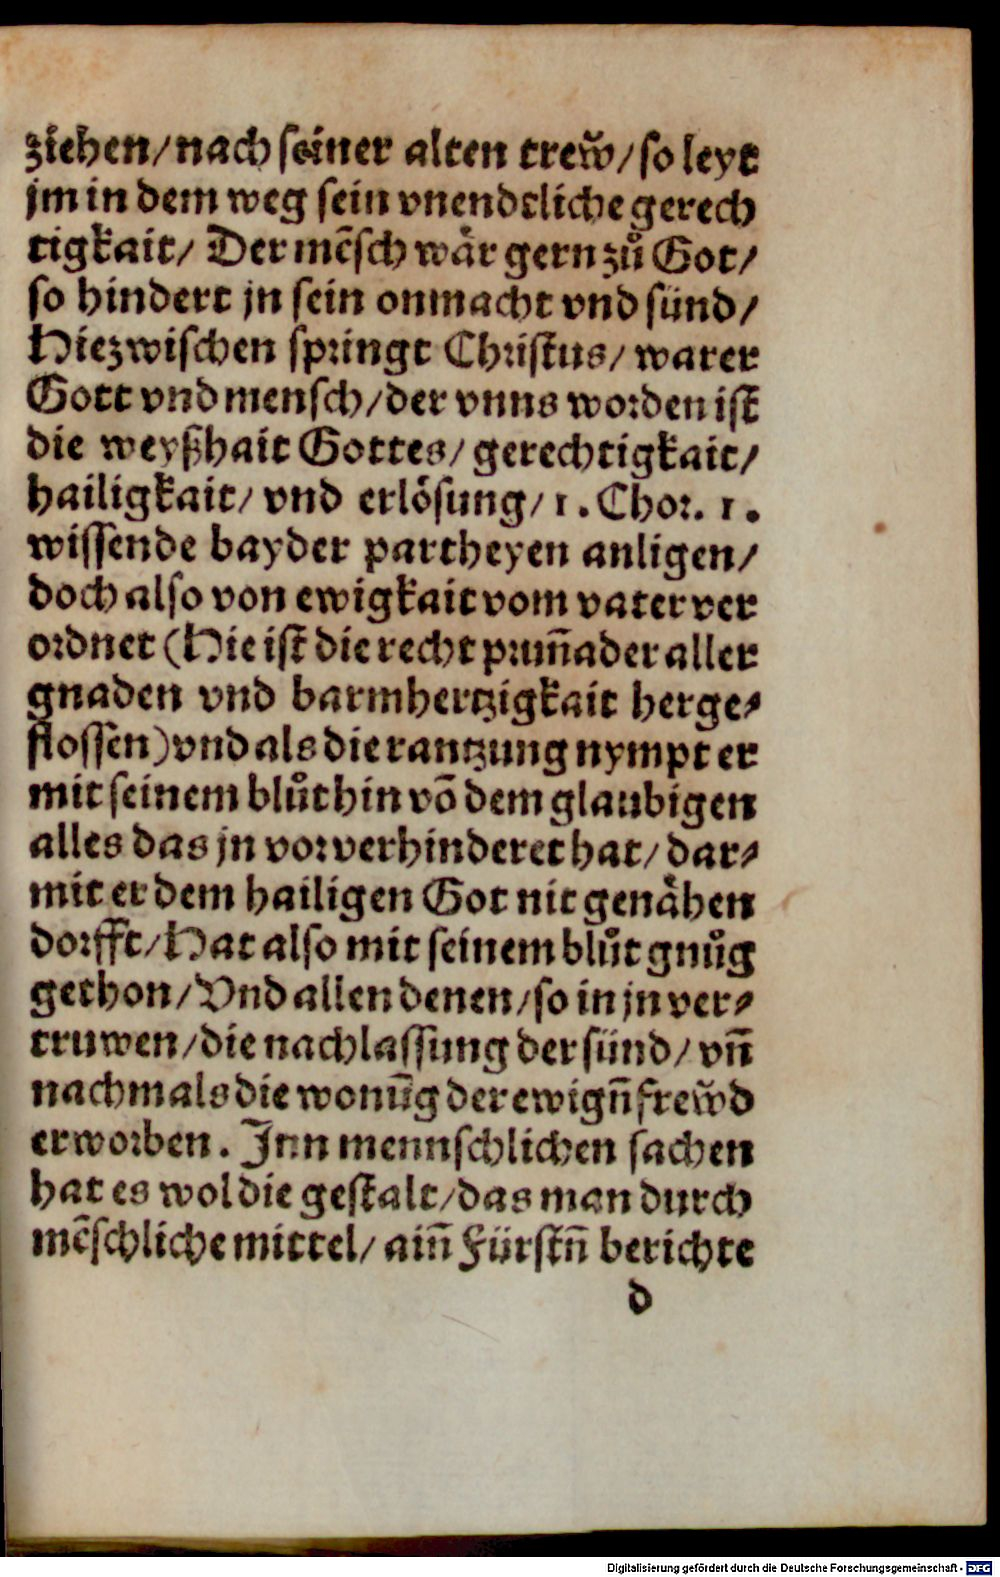 ziehen/nach seiner alten trew̆/so leyt
jm in dem weg sein vnendtliche gerech
tigkait/ Der mẽsch wår gern zů Got/
so hindert jn sein onmacht vnd sünd/
Hiezwischen springt Christus/ warer
Gott vnd mensch/der vnns worden ist
die weyßhait Gottes/ gerechtigkait/
hailigkait/ vnd erlösung/1. Chor. 1.
wissende bayder partheyen anligen/
doch also von ewigkait vom vater ver
ordnet (Hie ist die recht prum̃ader aller
gnaden vnd barmhertzigkait herge⸗
flossen)vnd als die rantzung nympt er
mit seinem blůt hin võ dem glaubigen
alles das jn vor verhinderet hat/ dar⸗
mit er dem hailigen Got nit genåhen
dorfft/Hat also mit seinem blůt gnůg
gethon/Vnd allen denen/so in jn ver⸗
truwen/die nachlassung der sünd/ vñ
nachmals die wonũg der ewigñ frew̆d
erworben. Jnn mennschlichen sachen
hat es wol die gestalt/das man durch
mẽschliche mittel/ aiñ Fürstñ berichte
d
Digitalisierung gefördert durch die Deutsche Forschungsgemeinschaft - DFG